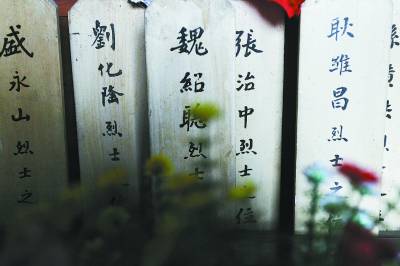 耿雎昌烈士
張治中烈士之位
魏紹聰烈士
劉化陰烈士
盛永山烈士之